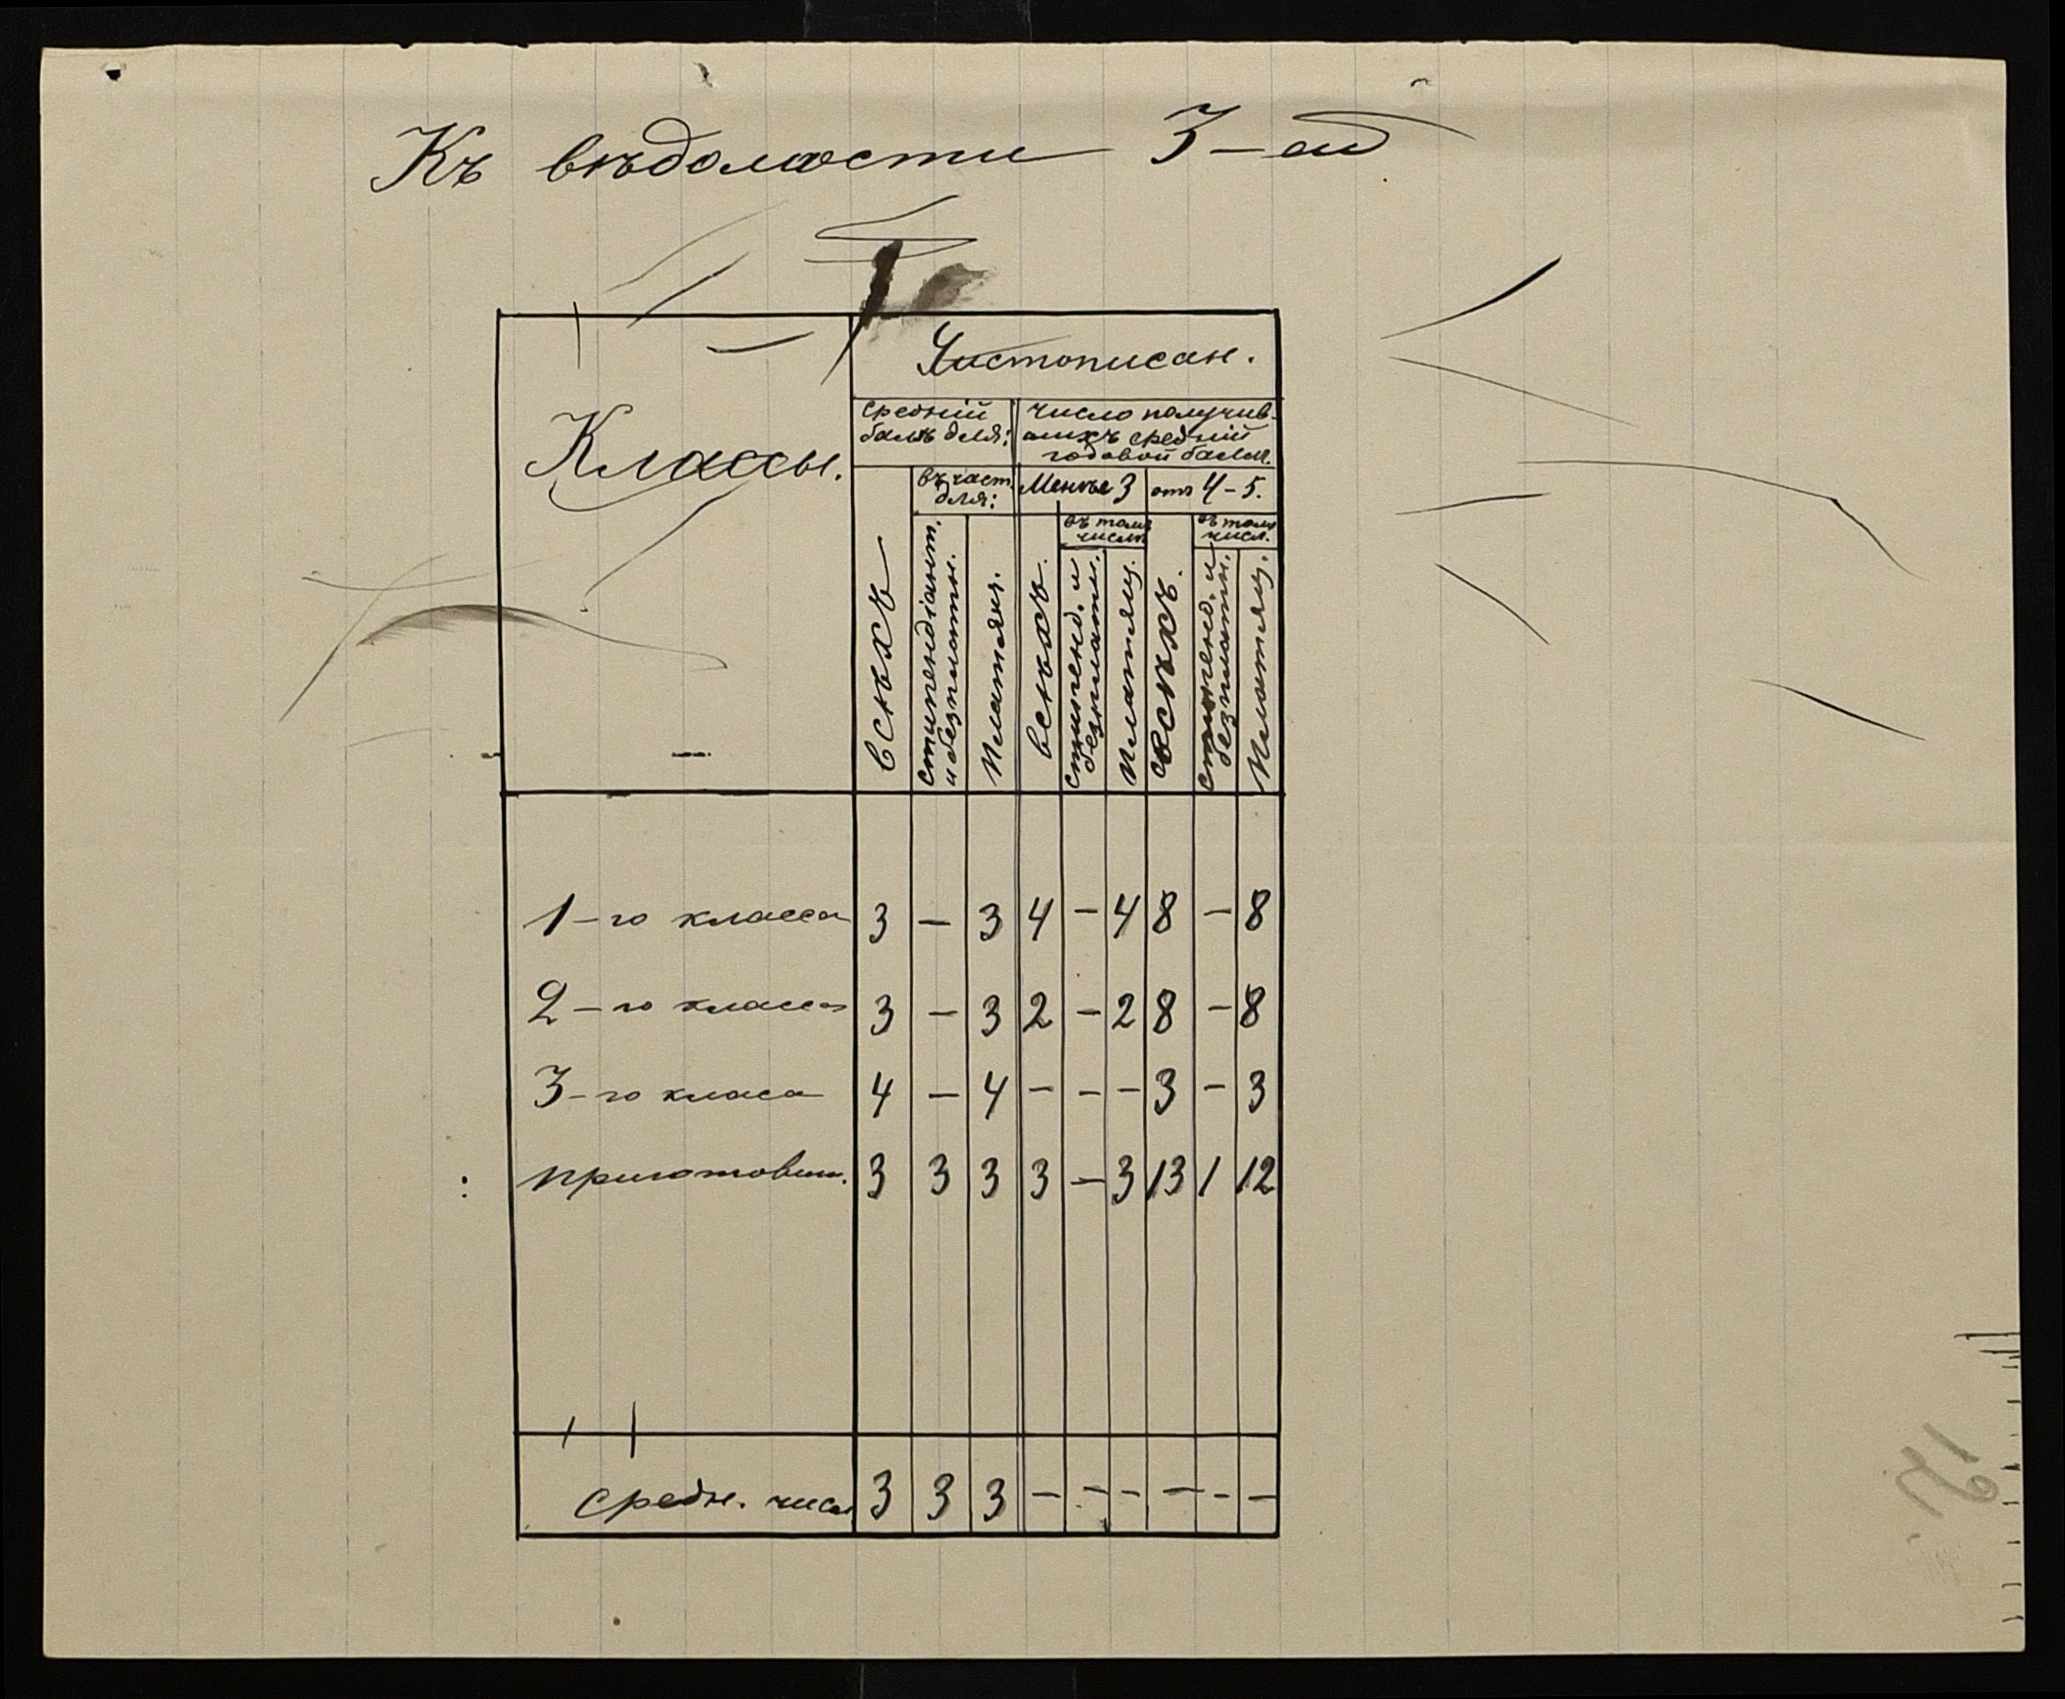 Къ вѣдомости 3-ей
Классы.
Чистописан.
средній
балъ для:
число получив-
шихъ средній
годовой балл.
въ част.
для:
Менѣе 3
отъ 4-5.
въ томъ
числѣ
въ томъ
числ.
всѣхъ
стипендіант.
и безплатн.
платящ.
всѣхъ.
стипенд. и
безплатн.
платящ.
всѣхъ.
стипенд. и
безплатн.
платящ.
1-го класса 3 — 3 4 — 4 8 — 8
2-го класса 3 — 3 2 — 2 8 — 8
3-го класа 4 — 4 — — — 3 — 3
приготовит. 3 3 3 3 — 3 13 1 12
средн. числ. 3 3 3 — — — — — —